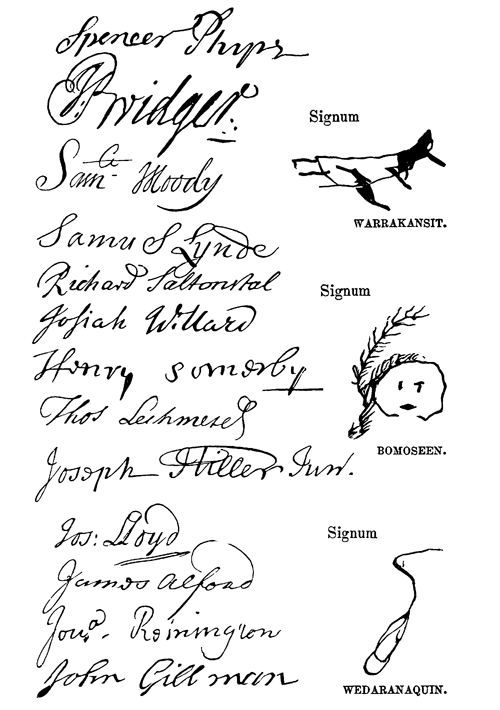 Spencer Phips
J Bridger.
Saml Moody
Samu S Lynde
Richard Saltonstal
Josiah Willard
Henry Somerby
Thos Lechmere
Joseph Hiller Junr.
Jos: Lloyd
James Alford
Jona. Remington
John Gillman
Signum
WARRAKANSIT.
Signum
BOMOSEEN.
Signum
WEDARANAQUIN.